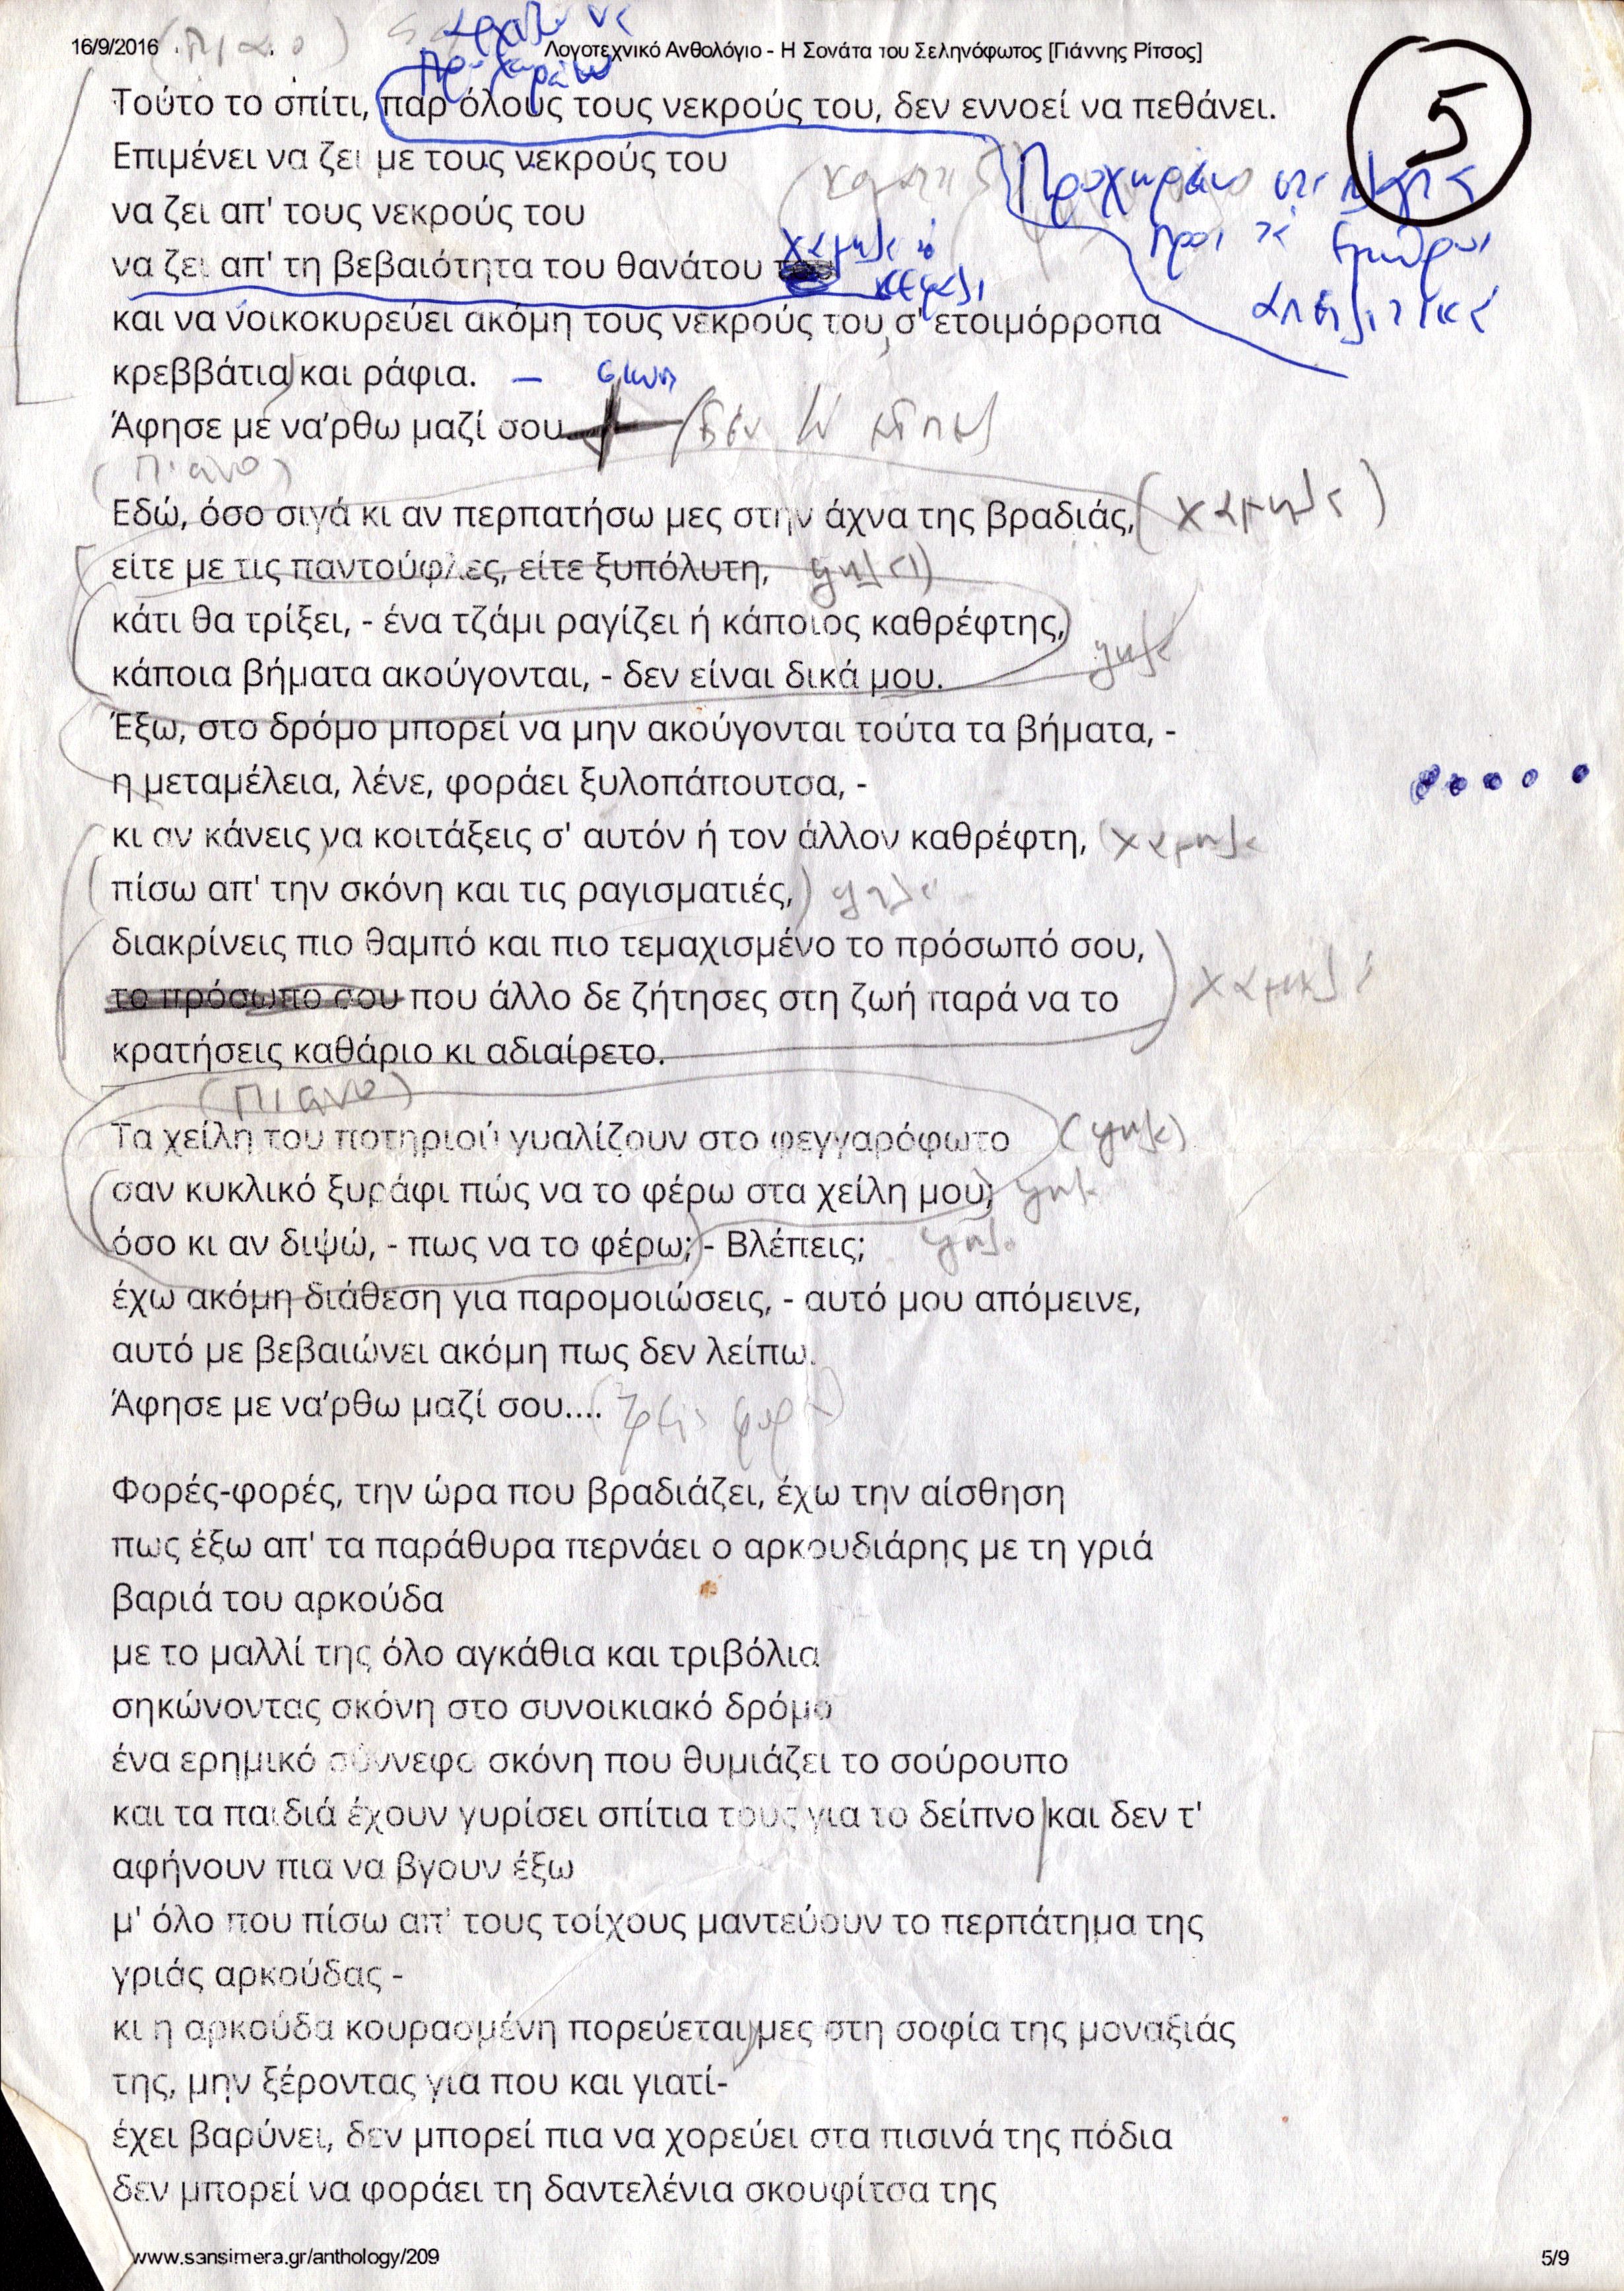 (πιανο)
16/9/2016
Λογοτεχνικό Ανθολόγιο - Η Σονάτα του Σεληνόφωτος [Γιάννης Ρίτσος]
5
Τούτο το σπίτι, παρ όλους τους νεκρούς του, δεν εννοεί να πεθάνει.
Επιμένει να ζει με τους νεκρούς του
Προχωράω
να ζει απ' τους νεκρούς του
προς τα εμπρός
να ζει απ' τη βεβαιότητα του θανάτου του
χαμηλά το
κεφάλι
απειλητικά
και να νοικοκυρεύει ακόμη τους νεκρούς του σ' ετοιμόρροπα
κρεββάτια και ράφια. –
Άφησε με να'ρθω μαζί σου
(πιανο)
Εδώ, όσο σιγά κι αν περπατήσω μες στην άχνα της βραδιάς, (χαμηλά)
είτε με τις παντούφλες, είτε ξυπόλυτη, ψηλά)
κάτι θα τρίξει, - ένα τζάμι ραγίζει ή κάποιος καθρέφτης,
ψηλά
κάποια βήματα ακούγονται, - δεν είναι δικά μου.
Έξω, στο δρόμο μπορεί να μην ακούγονται τούτα τα βήματα, -
η μεταμέλεια, λένε, φοράει ξυλοπάπουτσα, -
κι αν κάνεις να κοιτάξεις σ' αυτόν ή τον άλλον καθρέφτη, (χαμηλά
πίσω απ' την σκόνη και τις ραγισματιές,) ψηλά
διακρίνεις πιο θαμπό και πιο τεμαχισμένο το πρόσωπό σου,
χαμηλά
το πρόσωπο σου που άλλο δε ζήτησες στη ζωή παρά να το
κρατήσεις καθάριο κι αδιαίρετο.
(πιανο)
Τα χείλη του ποτηριού γυαλίζουν στο φεγγαρόφωτο (ψηλά)
σαν κυκλικό ξυράφι πώς να το φέρω στα χείλη μου; ψηλά
όσο κι αν διψώ, - πως να το φέρω; - Βλέπεις; ψηλά
έχω ακόμη διάθεση για παρομοιώσεις, - αυτό μου απόμεινε,
αυτό με βεβαιώνει ακόμη πως δεν λείπω.
Άφησε με να'ρθω μαζί σου.... (τρεις φορές)
Φορές-φορές, την ώρα που βραδιάζει, έχω την αίσθηση
πως έξω απ' τα παράθυρα περνάει ο αρκουδιάρης με τη γριά
βαριά του αρκούδα
με το μαλλί της όλο αγκάθια και τριβόλια
σηκώνοντας σκόνη στο συνοικιακό δρόμο
ένα ερημικό σύννεφο σκόνη που θυμιάζει το σούρουπο
και τα παιδιά έχουν γυρίσει σπίτια τους για το δείπνο και δεν τ'
αφήνουν πια να βγουν έξω
μ' όλο που πίσω απ' τους τοίχους μαντεύουν το περπάτημα της
γριάς αρκούδας -
κι η αρκούδα κουρασμένη πορεύεται μες στη σοφία της μοναξιάς
της, μην ξέροντας για που και γιατί-
έχει βαρύνει, δεν μπορεί πια να χορεύει στα πισινά της πόδια
δεν μπορεί να φοράει τη δαντελένια σκουφίτσα της
www.sansimera.gr/anthology/209
5/9